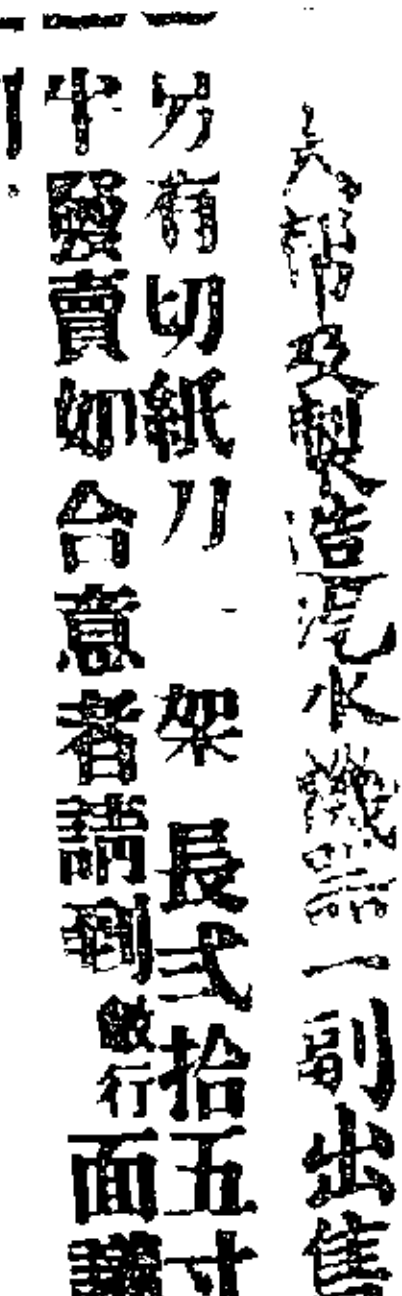 兵部及製造汽水機器一副出售
另有切紙刀一架長弍拾五寸
半發賣如合意者請到敝行面議